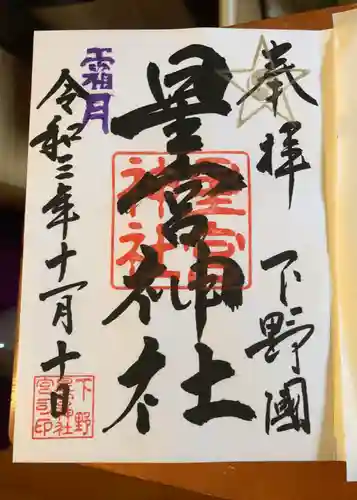 奉拝
下野國
星宮神社
星宮
神社
霜月
令和三年十一月十日
下野
星宮神社
宮司印